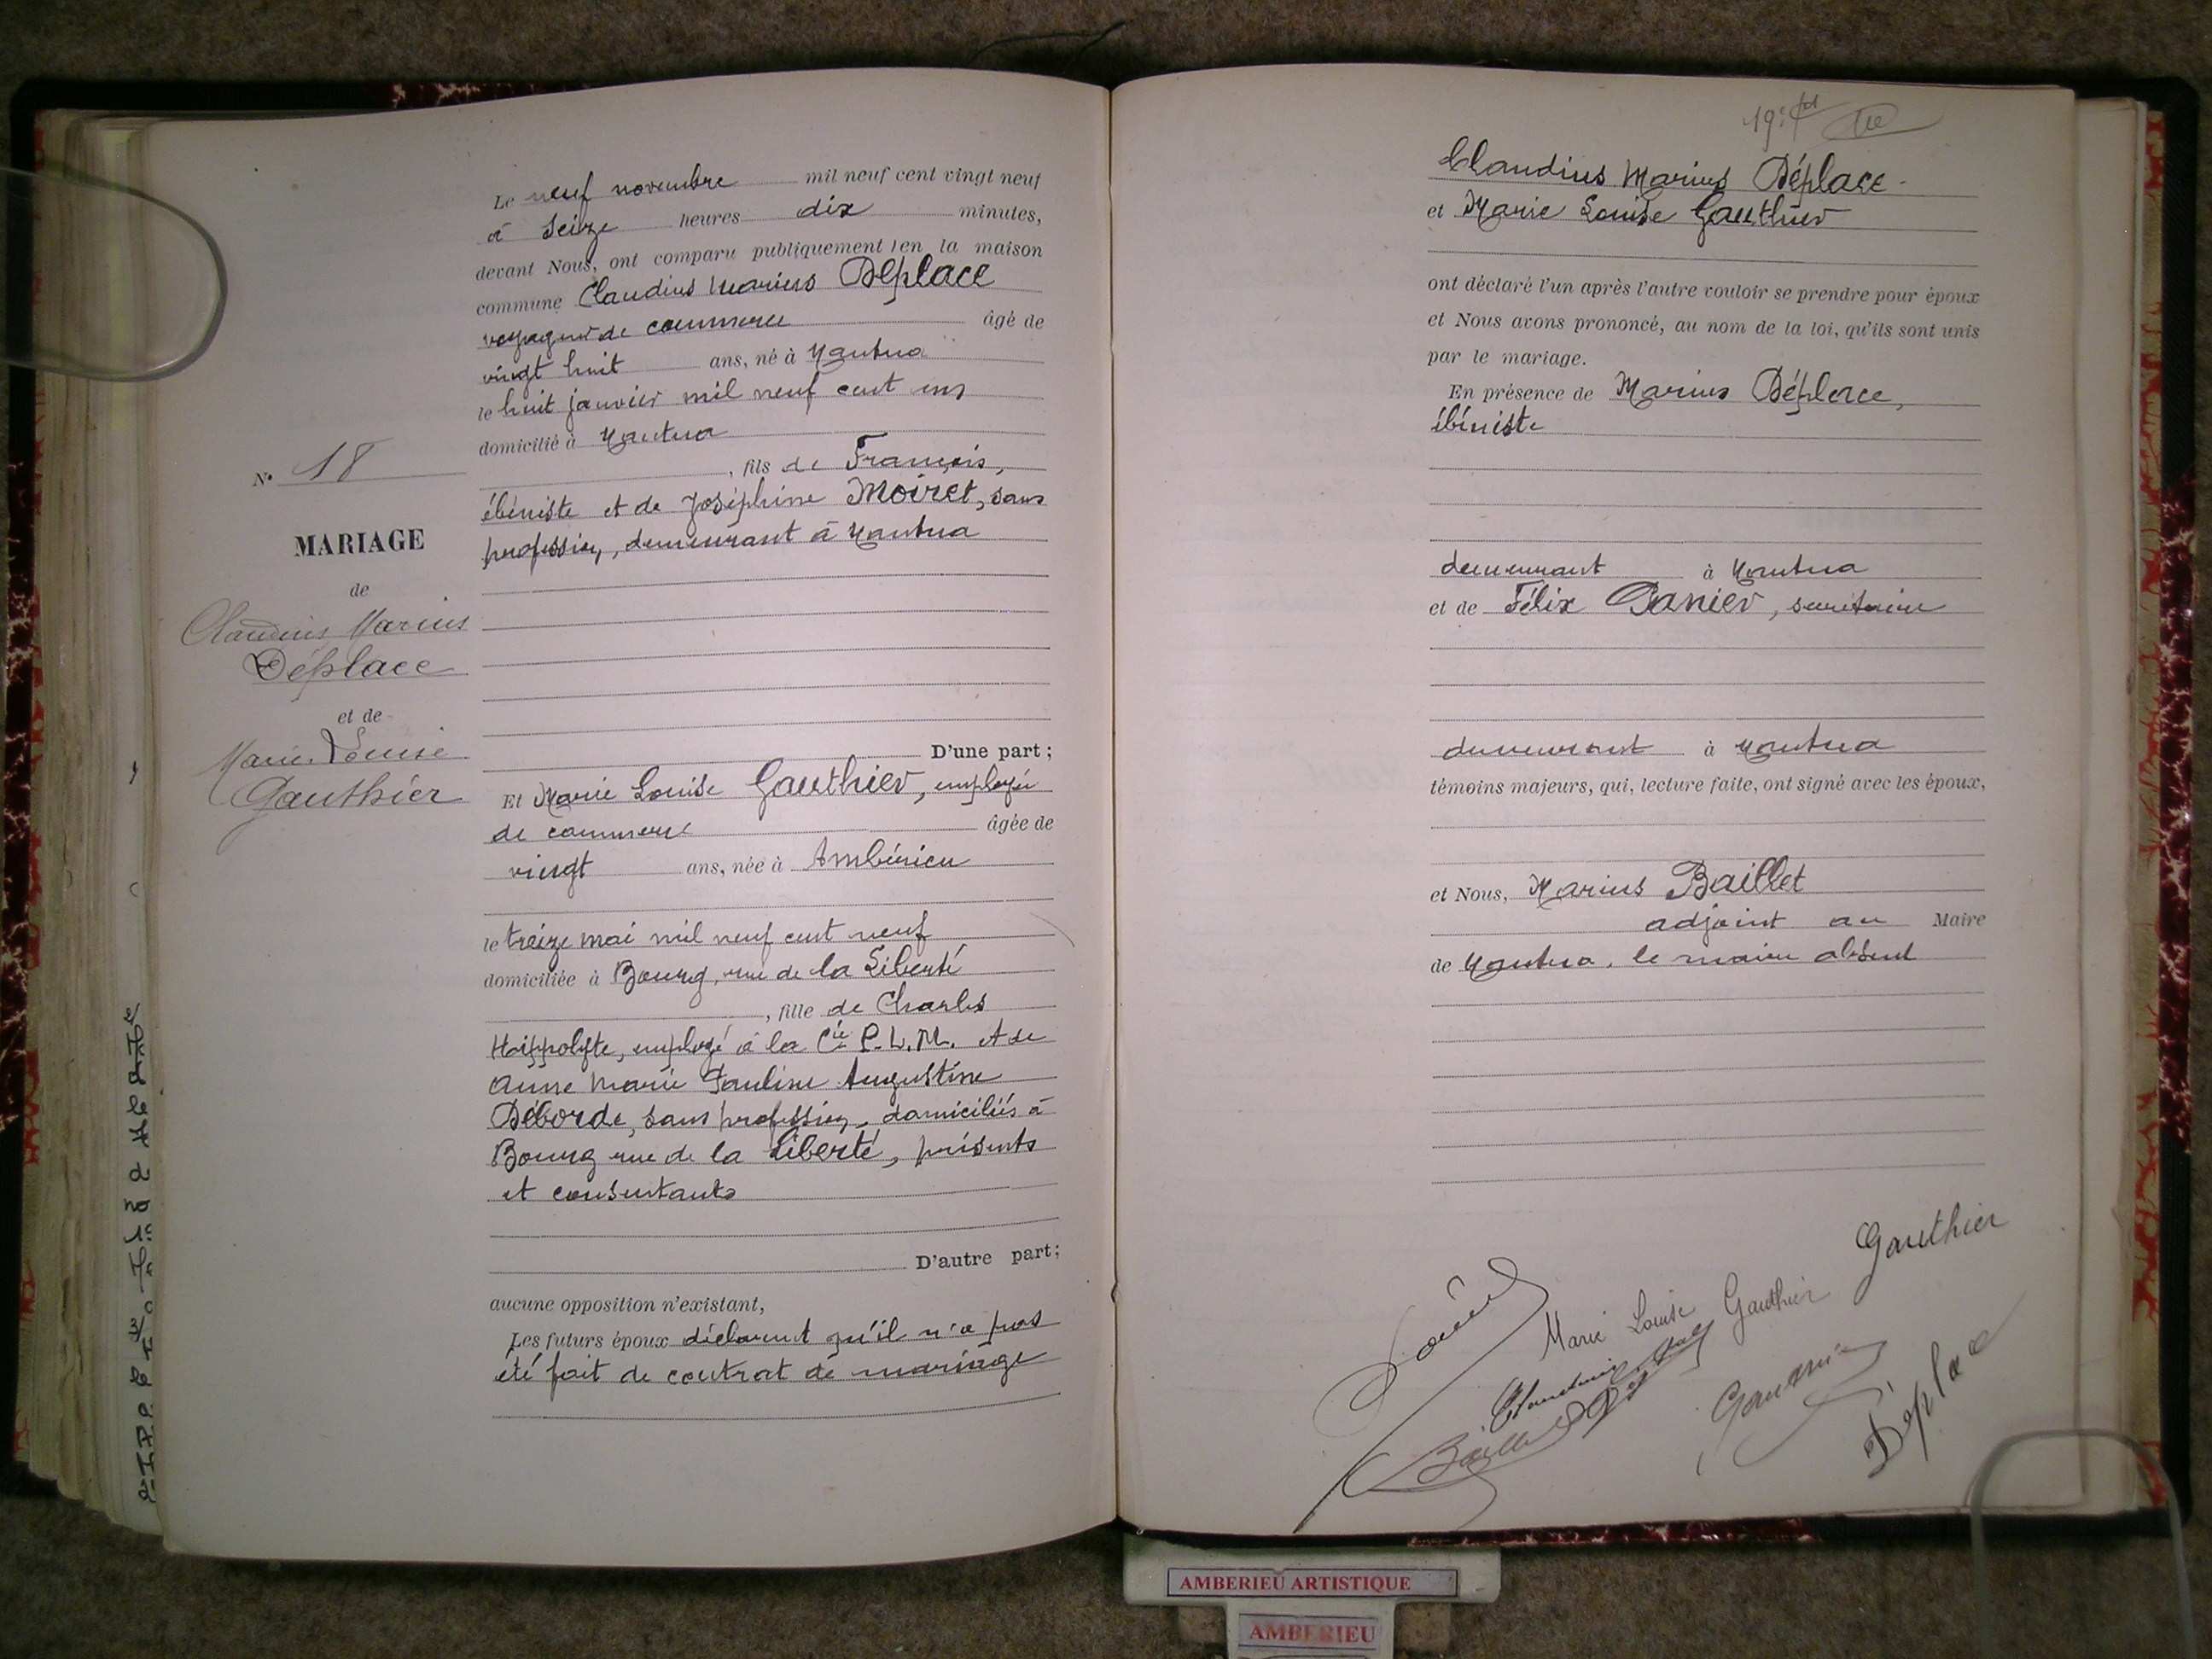 Le neuf novembre mil neuf cent vingt neuf
à seize heures dix minutes,
devant Nous, ont comparu publiquement en la maison
commune Claudius Marius Déplace
voyageur de commerce âgé de
vingt huit ans, né à Nantua
le huit janvier mil neuf cent un
domicilié à Nantua
, fils de François,
ébéniste et de Joséphine Moiret, sans
profession, demeurant à Nantua
D'une part ;
N° 18
MARIAGE
de
Claudius Marius
Déplace
et de
Marie Louise
Gauthier
Et Marie Louise Gauthier, employée
de commerce âgée de
vingt ans, née à Ambérieu
le treize mai mil neuf cent neuf
domiciliée à Bourg, rue de la Liberté
, fille de Charles
Hippolyte, employé à la Cie P.L.M. et de
Anne Marie Pauline Augustine
Déborde, sans profession, domiciliés à
Bourg rue de la Liberté, présents
et consentants
D'autre part ;
aucune opposition n'existant,
Les futurs époux déclarent qu'il n'a pas
été fait de contrat de mariage
Claudius Marius Déplace
et Marie Louise Gauthier
ont déclaré l'un après l'autre vouloir se prendre pour époux
et Nous avons prononcé, au nom de la loi, qu'ils sont unis
par le mariage.
En présence de Marius Déplace,
ébéniste
demeurant à Nantua
et de Félix Panier, secrétaire
demeurant à Nantua
témoins majeurs, qui, lecture faite, ont signé avec les époux,
et Nous, Marius Baillet
adjoint au Maire
de Nantua, le maire absent
Gauthier
Marie Louise Gauthier
Baillet
Déplace
AMBERIEU ARTISTIQUE
AMBERIEU